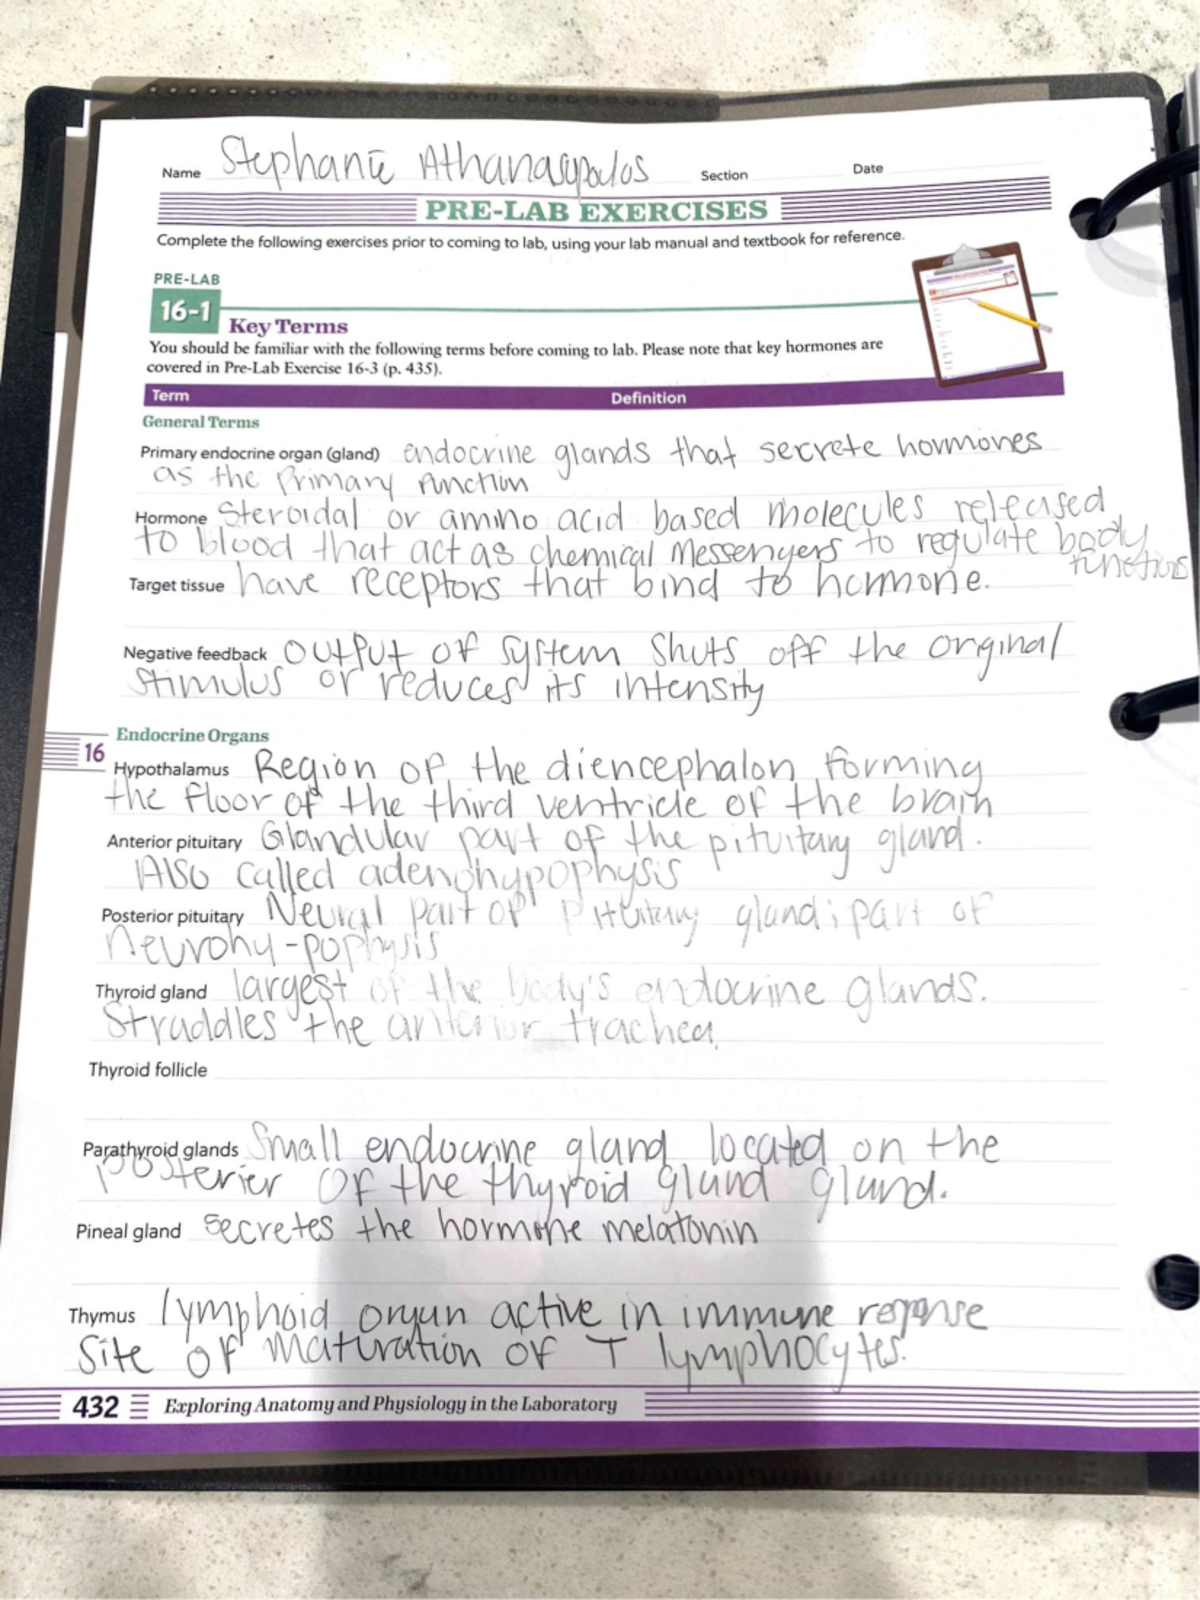 Name Stephanie Athanasopoulos Section Date
PRE-LAB EXERCISES
Complete the following exercises prior to coming to lab, using your lab manual and textbook for reference.
PRE-LAB
16-1
Key Terms
You should be familiar with the following terms before coming to lab. Please note that key hormones are
covered in Pre-Lab Exercise 16-3 (p. 435).
Term Definition
General Terms
Primary endocrine organ (gland) endocrine glands that secrete hormones
as the Primary function
Hormone Steroidal or amino acid based molecules released
to blood that act as chemical Messengers to regulate body
functions
Target tissue have receptors that bind to hormone.
Negative feedback output of system shuts off the original
stimulus or reduces its intensity
Endocrine Organs
16
Hypothalamus Region of the diencephalon forming
the floor of the third ventricle of the brain
Anterior pituitary Glandular part of the pituitary gland.
Also called adenohypophysis
Posterior pituitary Neural part of pituitary gland; part of
neurohy-pophysis
Thyroid gland largest of the body's endocrine glands.
Straddles the anterior trachea.
Thyroid follicle
Parathyroid glands Small endocrine gland located on the
posterier of the thyroid gland gland.
Pineal gland secretes the hormone melatonin
Thymus lymphoid organ active in immune response
Site of maturation of T lymphocytes.
432 Exploring Anatomy and Physiology in the Laboratory